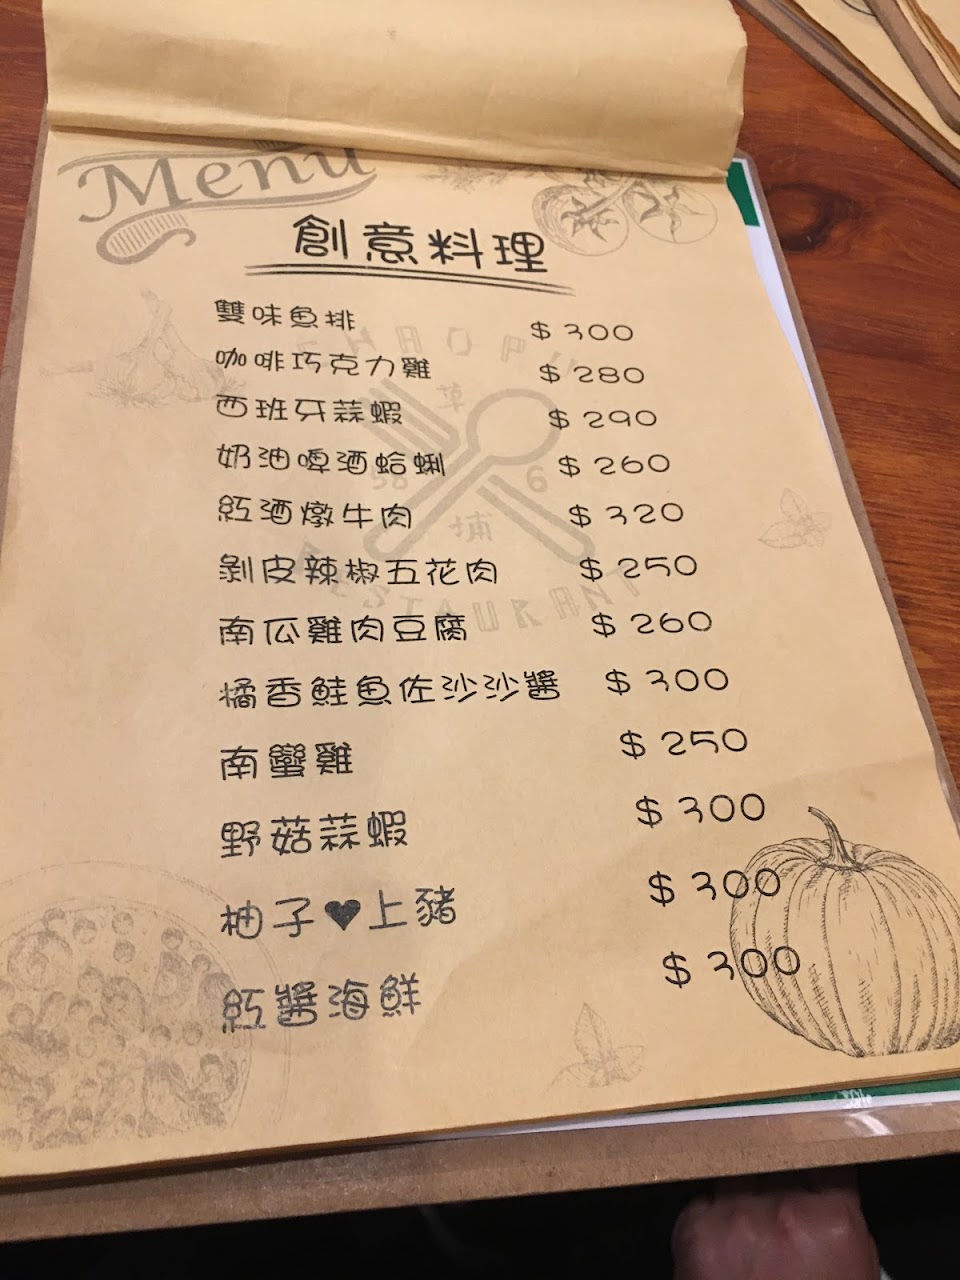 Menu
創意料理
雙味魚排 $300
咖啡巧克力雞 $280
西班牙蒜蝦 $290
奶油啤酒蛤蜊 $260
紅酒燉牛肉 $320
剝皮辣椒五花肉 $250
南瓜雞肉豆腐 $260
橘香鮭魚佐沙沙醬 $300
南蠻雞 $250
野菇蒜蝦 $300
柚子♥上豬 $300
紅醬海鮮 $300
CHAOPU
草
58 6
埔
RESTAURANT